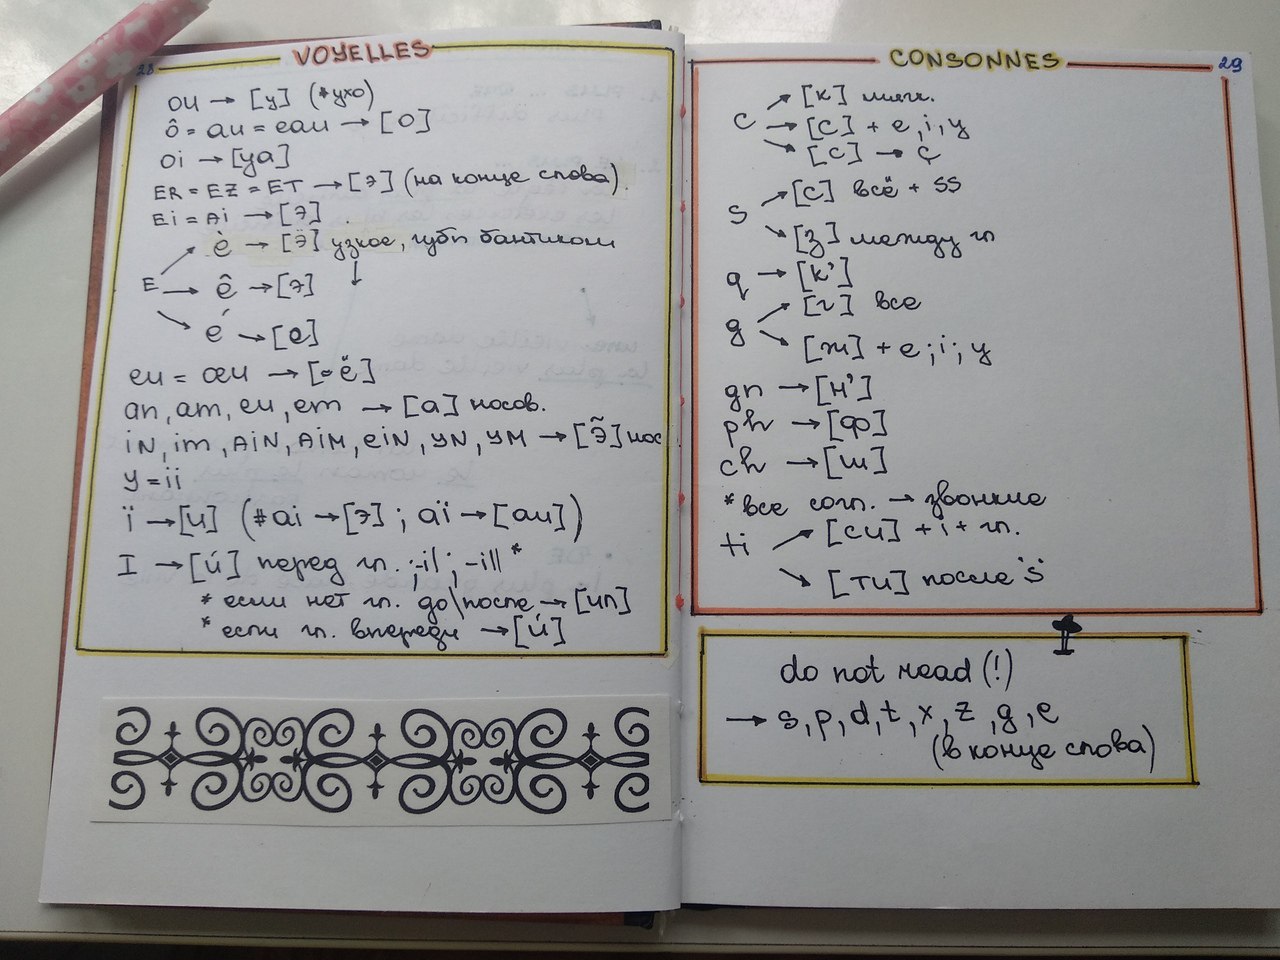 28
VOYELLES
ou → [у] (*ухо)
ô = au = eau → [о]
oi → [уа]
ER = EZ = ET → [э] (на конце слова)
Ei = Ai → [э]
è → [ӭ] узкое, губы бантиком
E → ê → [э]
é → [e]
eu = œu → [≈ё]
an, am, eu, em → [а] носов.
iN, im, AiN, AiM, eiN, yN, yM → [э̃] нос
y = ii
ï → [и] (#ai → [э]; aï → [аи])
I → [й] перед гл. ; -il ; -ill *
* если нет гл. до\после → [ил]
* если гл. впереди → [й]
CONSONNES
29
c → [к] мягк.
→ [с] + e, i, y
[с] → ç
s → [с] всё + ss
→ [з] между гл
q → [к']
g → [г] все
→ [ж] + e; i; y
gn → [н']
ph → [ф]
ch → [ш]
* все согл. → звонкие
ti → [си] + i + гл.
→ [ти] после "s"
do not read (!)
→ s, p, d, t, x, z, g, e
(в конце слова)